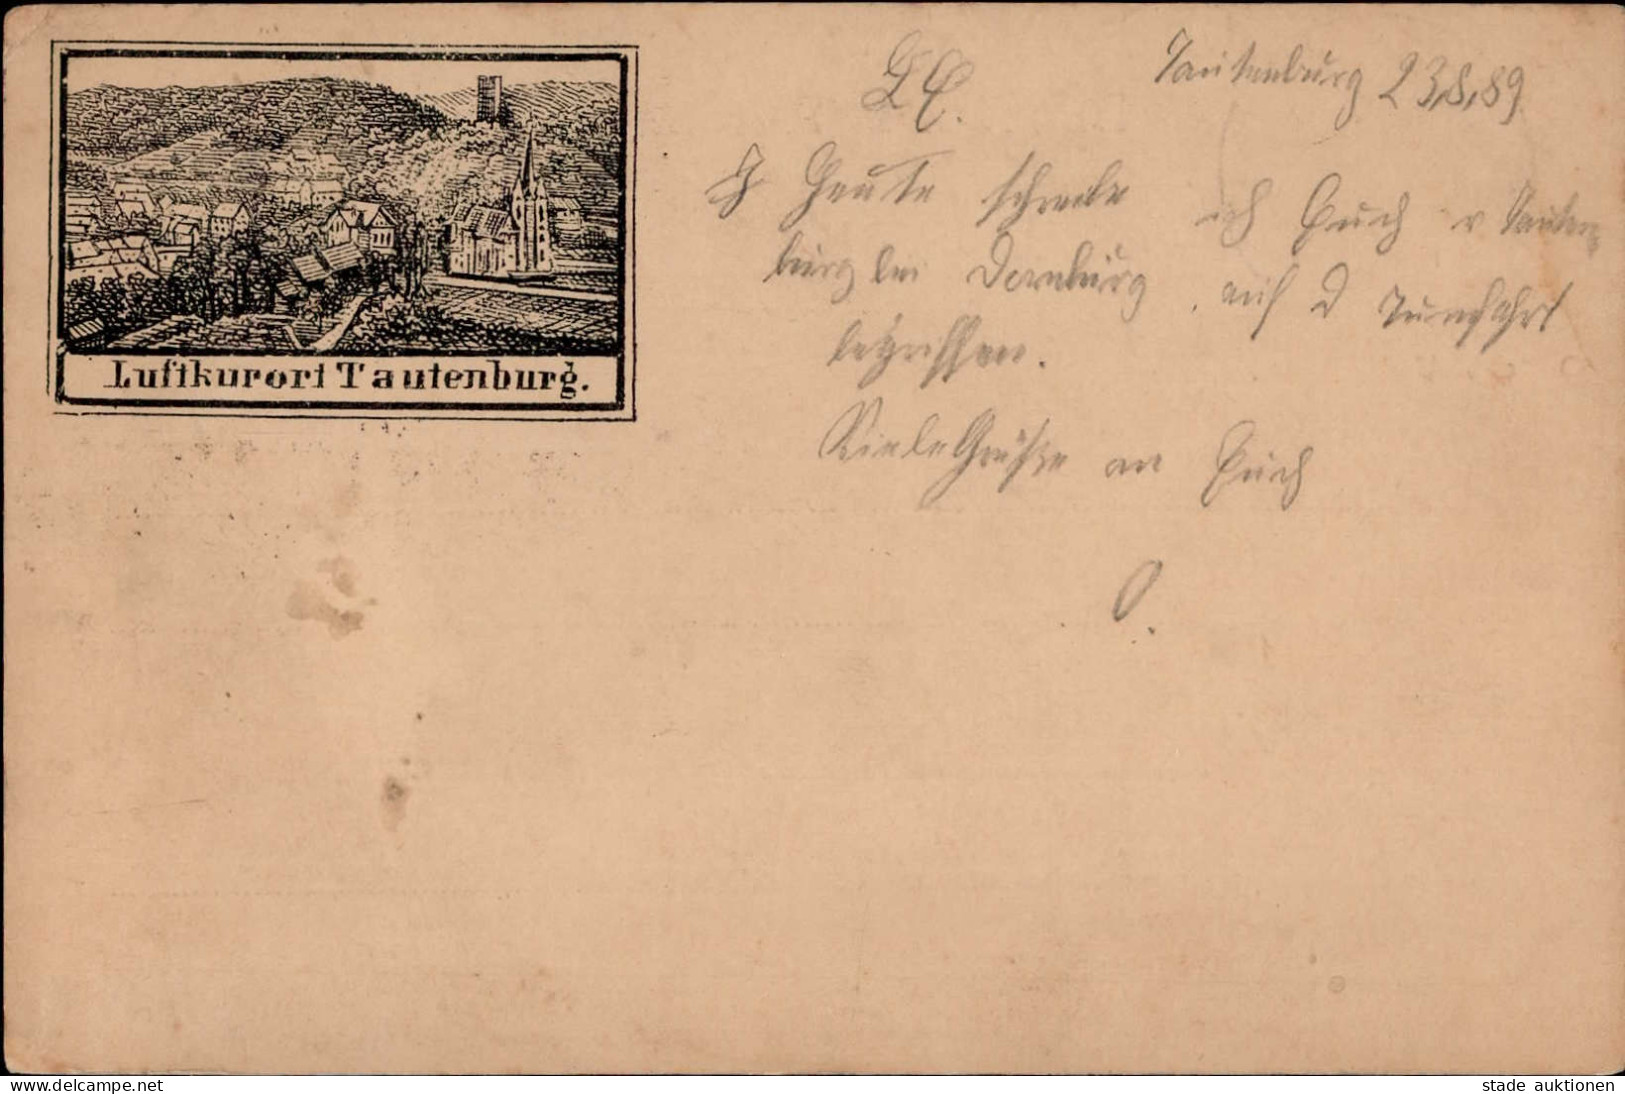 Luftkurort Tautenburg.
Tautenburg 23.8.89.
L E.
Heute schreibe ich Euch v Tauten-
burg bei Dornburg, auf d Turnfahrt
begriffen.
Viele Grüße an Euch
O.
delcampe.net
stade auktionen